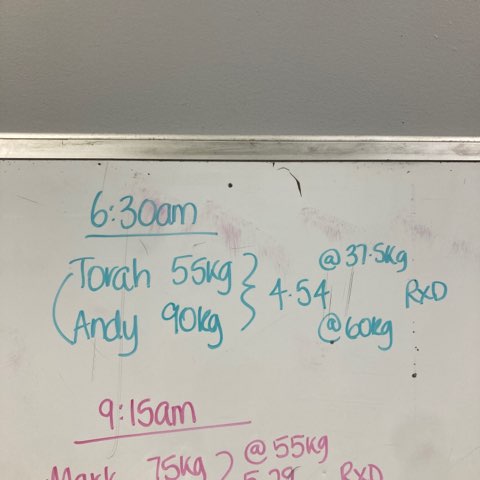 6:30am
Torah 55kg } 4.54 @37.5kg RXD
Andy 90kg @60kg
9:15am
Mark 75kg } @55kg
RXD